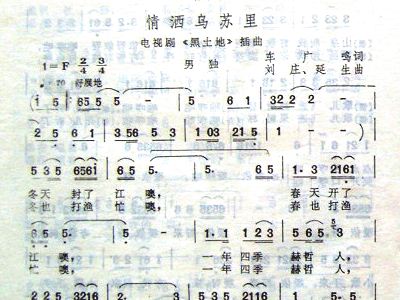 情洒乌苏里
电视剧《黑土地》插曲
1=F 2/4 3/4 男独 车广鸣词
♩=70 舒展地 刘庄、延生曲
(1 5 | 6 5 5 5 | 5 - - | 5 6 1 | 3 2 2 2 - |
2 5 6 1 | 3 5 6 5 3 | 1 0 3 2 1 5 | 5 - - | 5 - -) |
5 3 5 6 5 6 1 | 5 - - | 5 - - | 1· 3 2 1 6 1 |
冬天 封了 江 噢, 春天 开了
冬也 打渔 忙 噢, 春也 打渔
6 5 2 - | 2 - - | 1 1 1 2 3 | 5 6 5 3 5 |
江 噢, 一年 四季 赫哲 人,
忙 噢, 一年 四季 赫哲 人,
2 2 5 3 2 1 6 | 2 - | 2 - | 5 3 5 2 1 1 6 |